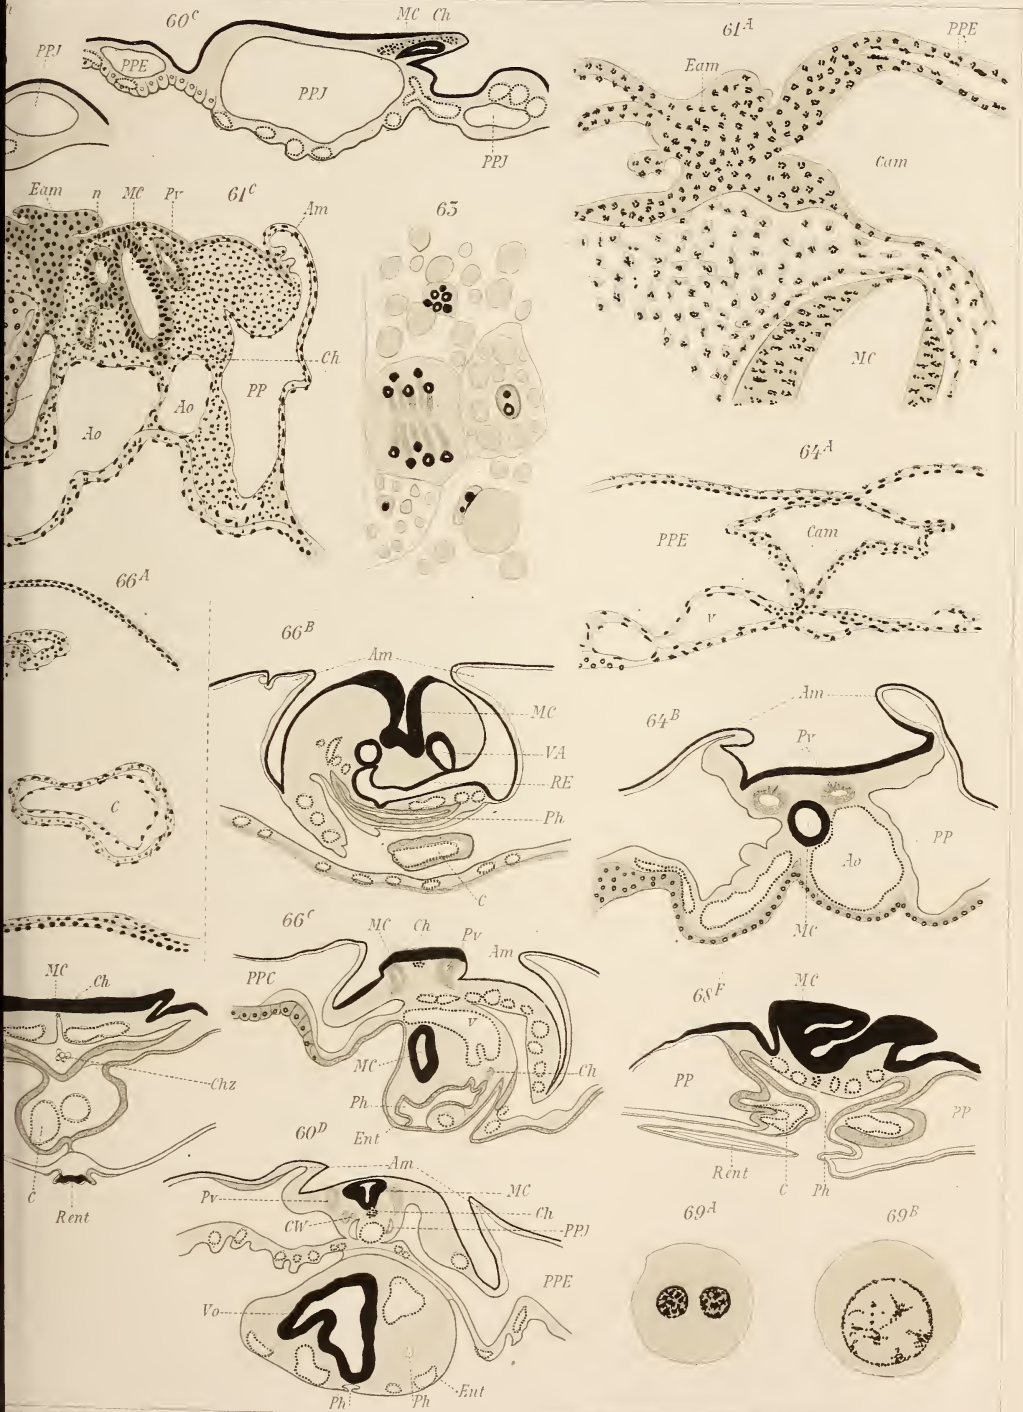 60C
MC Ch
PPJ
PPE
PPJ
PPJ
61A
PPE
Eam
Cam
MC
Eam n MC Pv
61C
Am
Ch
PP
Ao
Ao
63
64A
Cam
PPE
V
66A
C
66B
Am
MC
VA
RE
Ph
C
64B
Am
Pv
PP
Ao
MC
66C
MC Ch Pv Am
PPC
V
MC
Ch
Ph
Ent
MC
Ch
Chz
C
Rent
68F
MC
PP
PP
Rent
C
Ph
60D
Am
Pv
MC
Ch
CW
PPJ
PPE
Vo
Ent
Ph
Ph
69A
69B